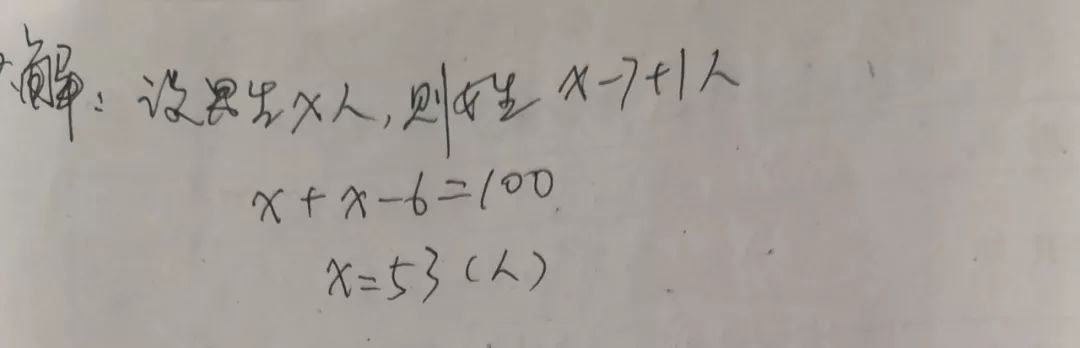 解：设男生x人，则女生 x-7+1人
x+x-6=100
x=53（人）